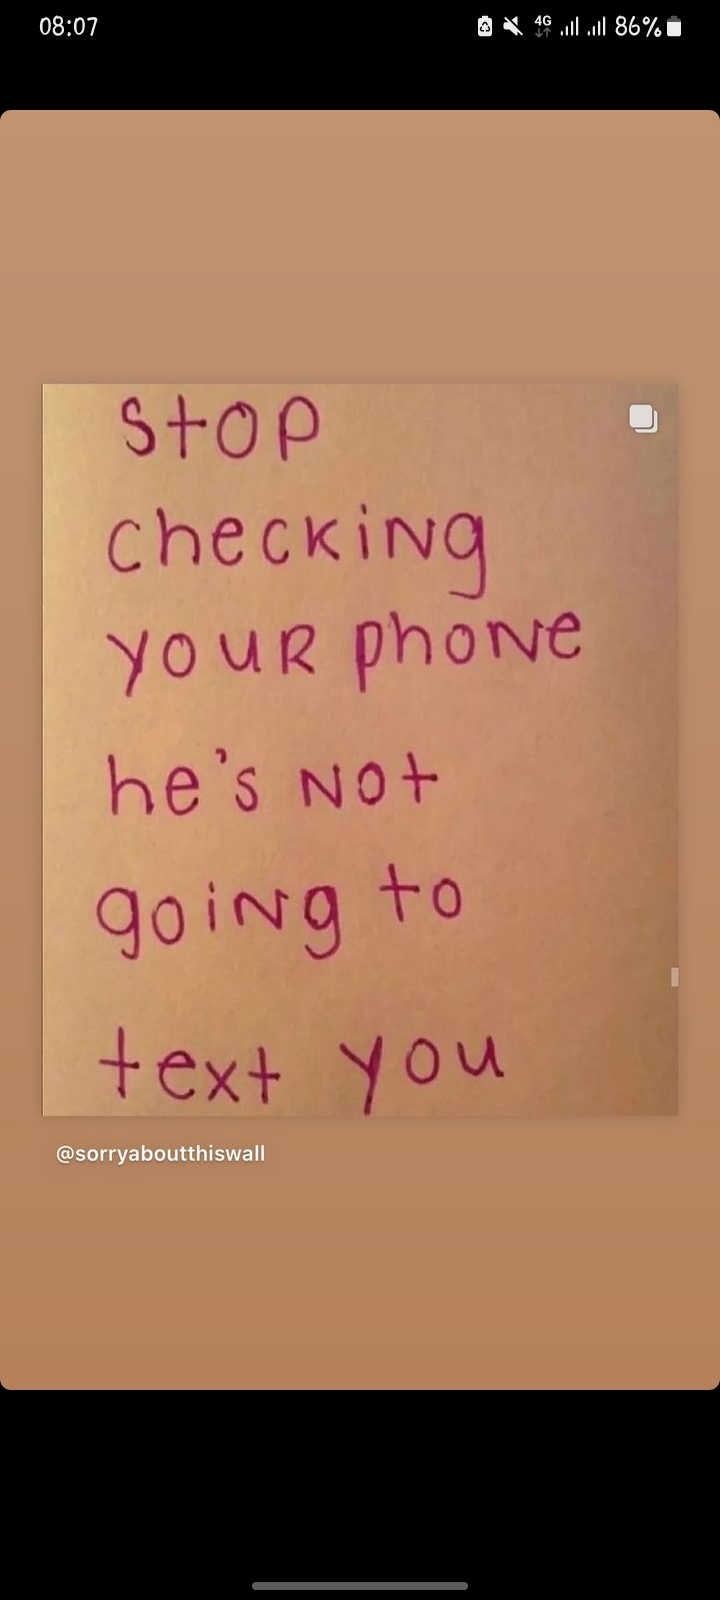 08:07 4G 86%
stop
checking
your phone
he's not
going to
text you
@sorryaboutthiswall